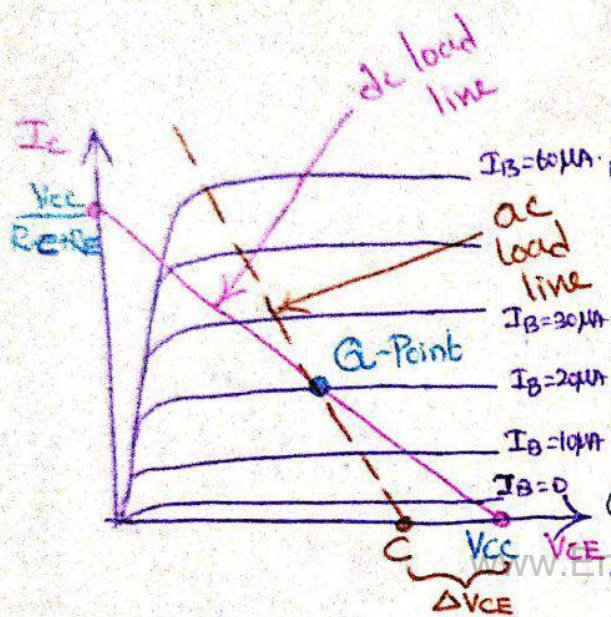 dc load
line
Ic
Vcc
Rc+RE
IB=60µA
ac
load
line
IB=30µA
Q-Point
IB=20µA
IB=10µA
IB=0
C
VCC
VCE
ΔVCE